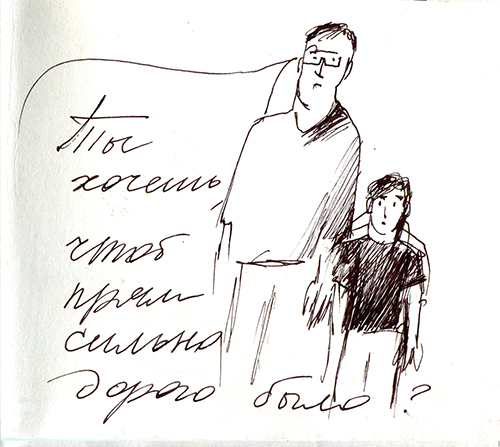 Ты
хочешь,
чтоб
прям
сильно
дорого было?